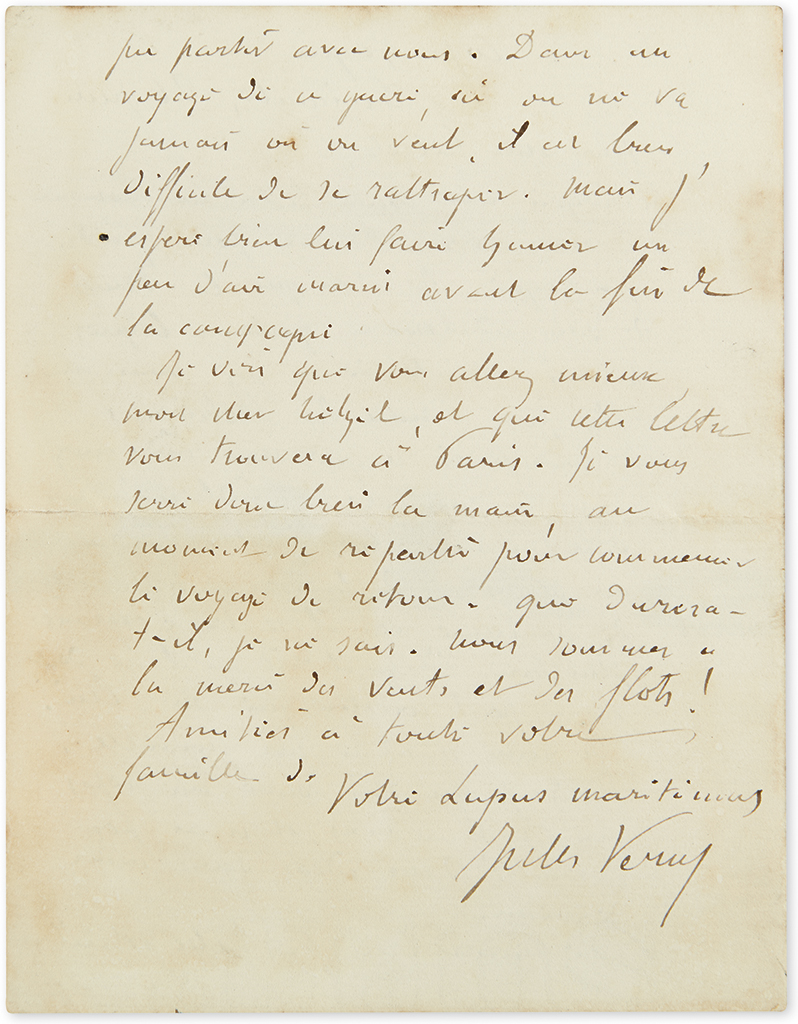 pu partir avec nous. Dans un
voyage de ce genre, où on ne va
jamais où on veut, il est bien
difficile de se rattraper. Mais j'
espère bien lui faire humer un
peu d'air marin avant la fin de
la campagne.
Je vois que vous allez mieux
mon cher Hetzel, et que cette lettre
vous trouvera à Paris. Je vous
serre donc bien la main, au
moment de repartir pour commencer
le voyage de retour. Que durera-
t-il, je ne sais. Nous sommes à
la merci des vents et des flots!
Amitiés à toute votre
famille de
Votre Lupus maritimus
Jules Verne